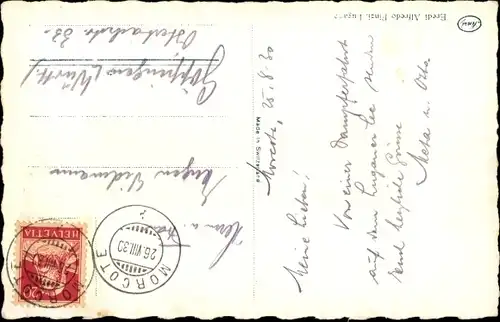 Eredi Alfredo Finzi, Lugano
Made in Switzerland
Morcote, 25.8.30
Meine Lieben!
Von einer Dampferfahrt
auf dem Luganer See senden
Euch herzliche Grüsse
Meta u. Otto
Herrn u. Frau
Eugen Widmann
Göppingen (Württ.)
33.
HELVETIA
20
MORCOTE
26.VIII.30